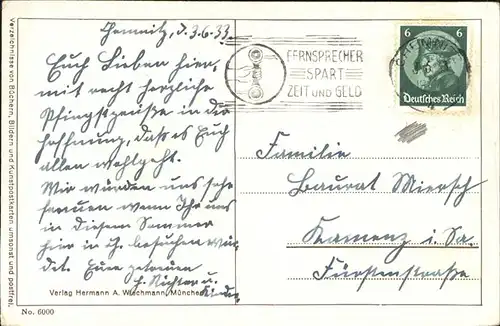 Chemnitz, d. 3.6.33
Euch Lieben hier,
mit recht herzliche
Pfingstgrüße in der
Hoffnung, daß es Euch
allen wohlgeht.
Wir würden uns sehr
freuen wenn Ihr uns
in diesem Sommer
hier in Ch. besuchen wür-
det. Eure getreuen
H. Richter u.
Kinder
FERNSPRECHER
SPART
ZEIT UND GELD
6 6
Deutsches Reich
Familie
Baurat Miersch
Kamenz i. Sa.
Fürstenstraße
Verlag Hermann A. Wiechmann, München
No. 6000
Verzeichnisse von Büchern, Bildern und Kunstpostkarten umsonst und postfrei.